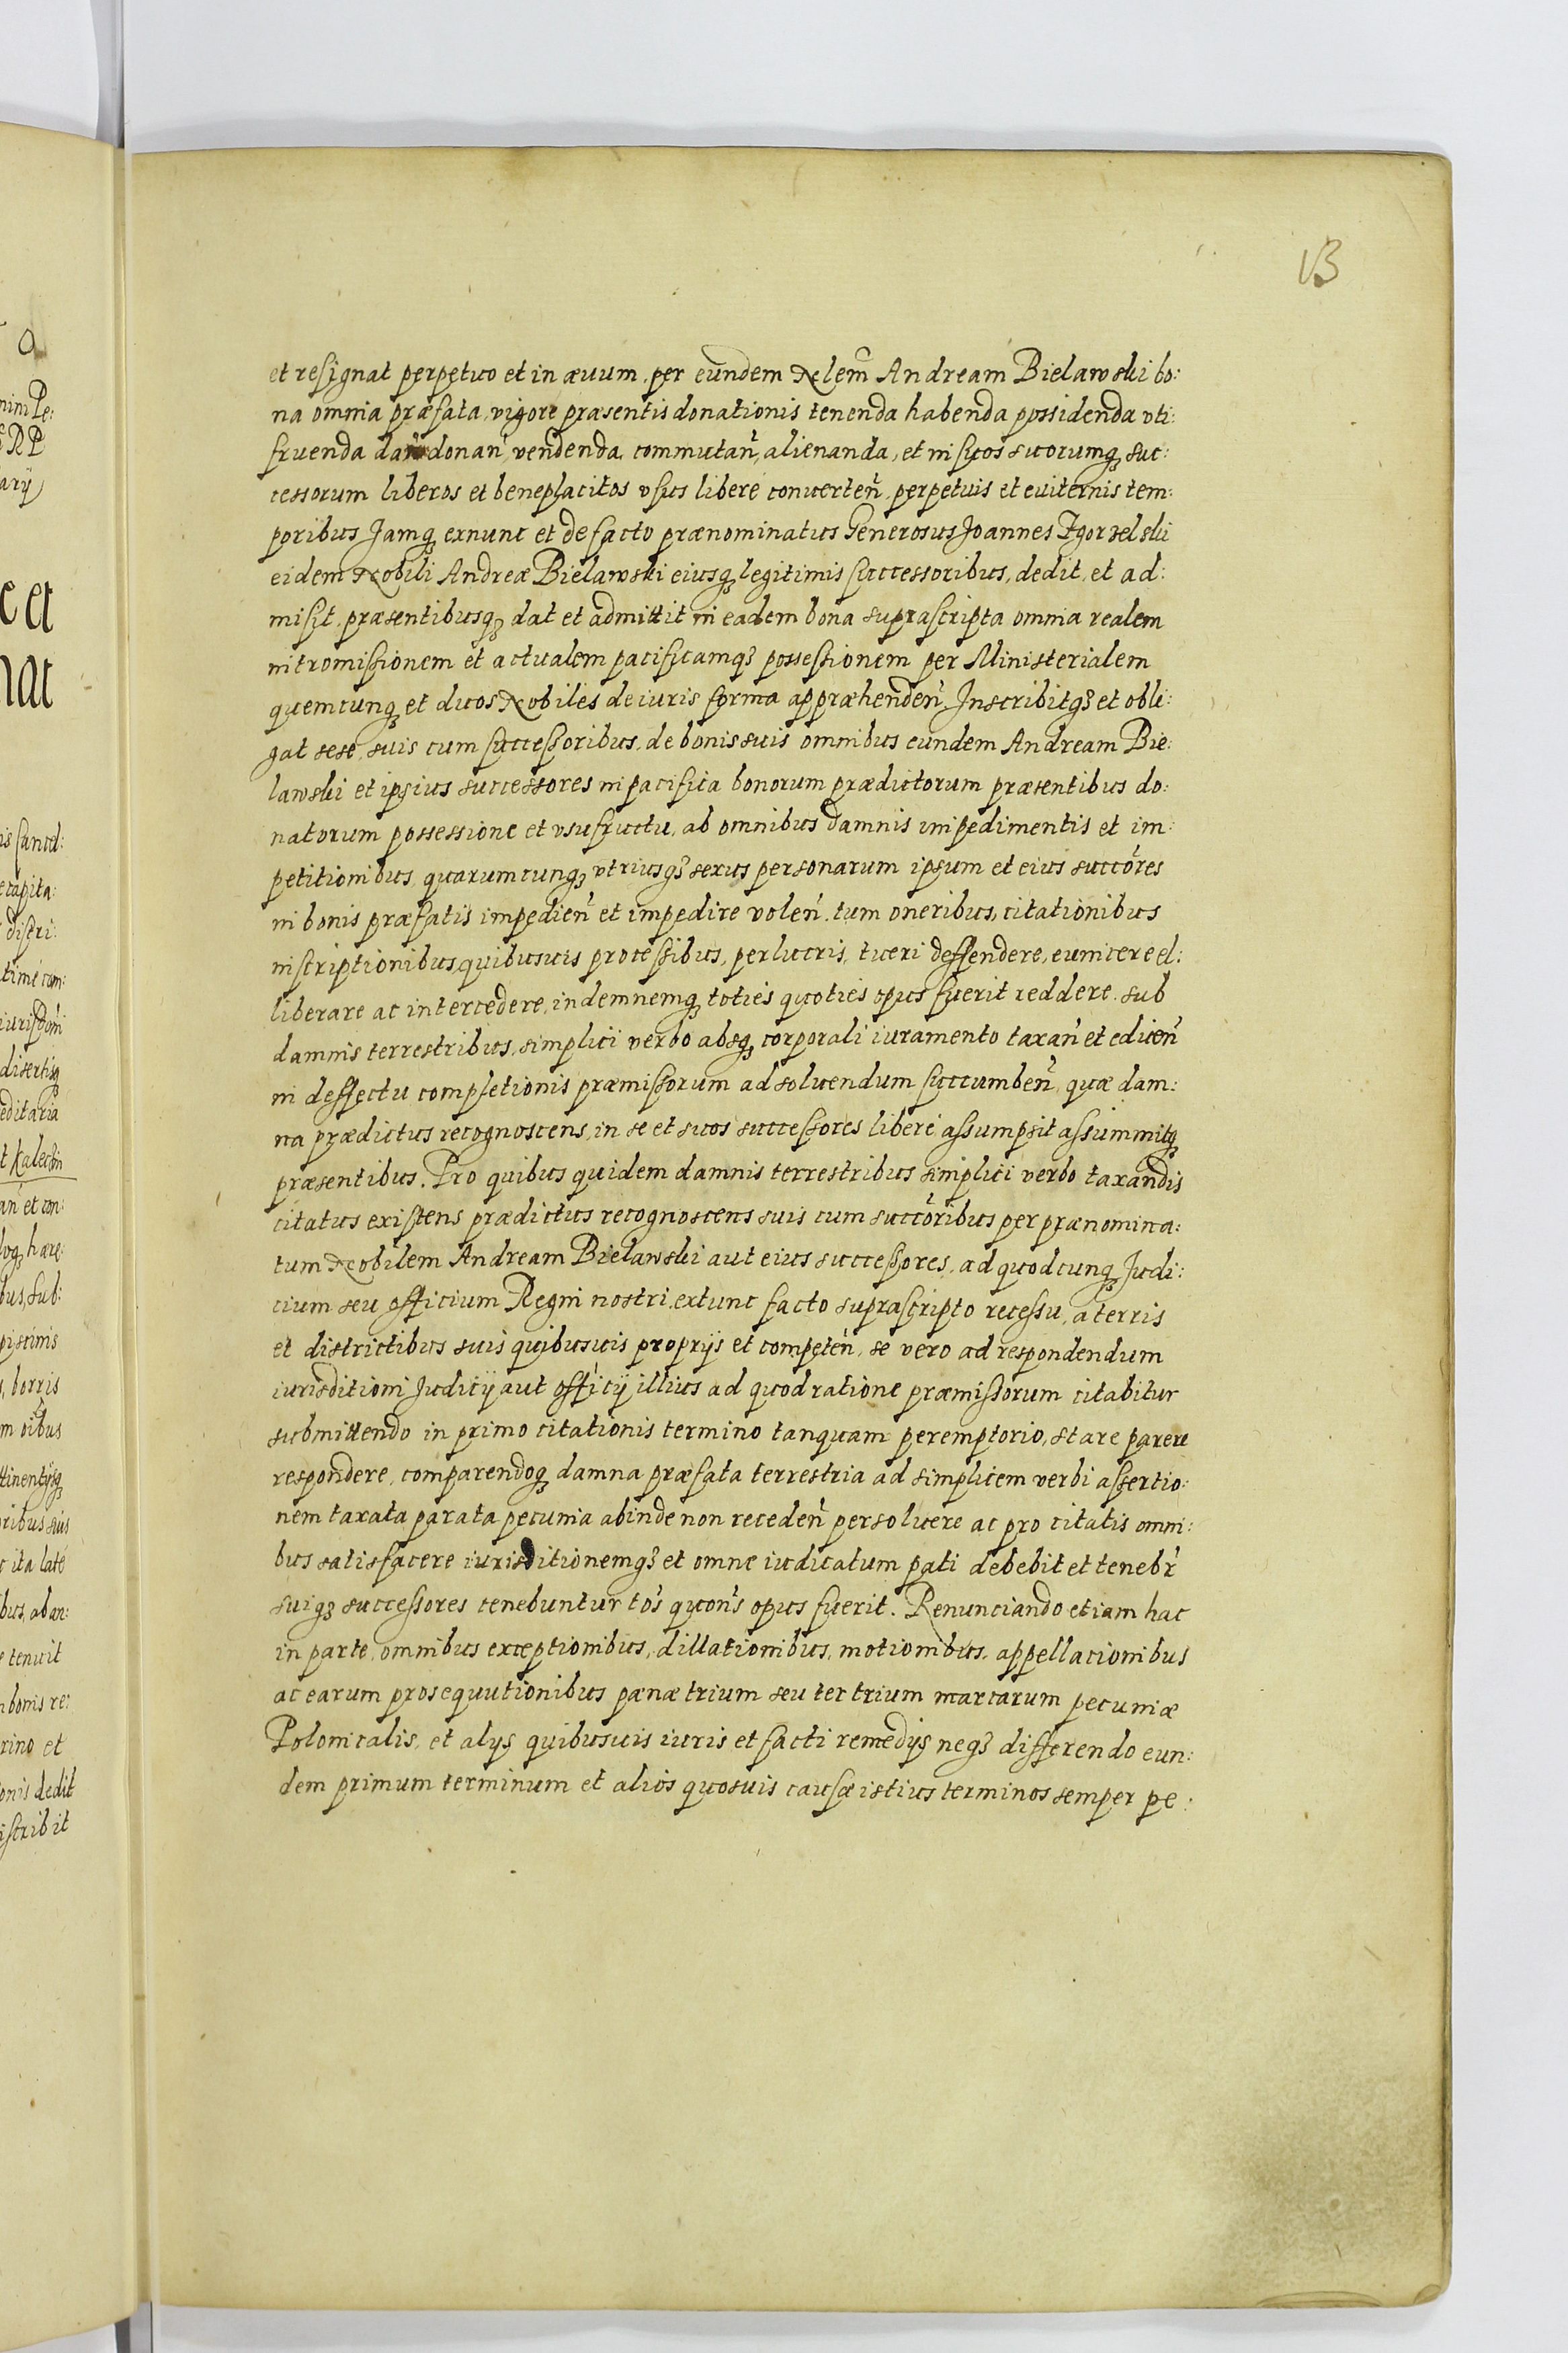 13
et resignat perpetuo et in æuum, per eundem Nclem̃ Andream Bielawski bo:
na omnia præfata, vigore præsentis donationis tenenda habenda possidenda vti:
fruenda dan̄ donan̄, vendenda, commutan̄, alienanda, et in suos suorumq̨ suc:
cessorum liberos et beneplacitos vsus libere conuerten̄, perpetuis et euiternis tem:
poribus Jamq̨ exnunc et de facto prænominatus Generosus Joannes Zgorzelski
eidem Nobili Andreæ Bielawski eiusq̨ legitimis successoribus, dedit, et ad:
misit, præsentibusq̨ dat et admittit in eadem bona suprascripta omnia realem
intromissionem et actualem pacificamq̨ possessionem per Ministerialem
quemcunq̨ et duos Nobiles de iuris forma appræhenden̄. Inscribitq̨ et obli:
gat sese, suis cum successoribus, de bonis suis omnibus eundem Andream Bie:
lawski et ipsius successores in pacifica bonorum prædictorum præsentibus do:
natorum possessione et vsufructu, ab omnibus damnis impedimentis et im:
petitionibus, quarumcunq̨ vtriusq̨ sexus personarum ipsum et eius succo͂res
in bonis præfatis impedien̄ et impedire volen̄, tum oneribus, citationibus
inscriptionibus quibusuis processibus, perlucris, tueri deffendere, euincere el:
liberare ac intercedere, indemnemq̨ toties quoties opus fuerit reddere, sub
damnis terrestribus, simplici verbo absq̨ corporali iuramento taxan̄ et edicen̄
in deffectu completionis præmissorum ad soluendum succumben̄, quæ dam:
na prædictus recognoscens, in se et suos successores libere assumpsit assummitq̨
præsentibus. Pro quibus quidem damnis terrestribus simplici verbo taxandis
citatus existens prædictus recognoscens suis cum succo͂ribus per prænomina:
tum Nobilem Andream Bielawski aut eius successores, ad quodcunq̨ Judi:
cium seu officium Regni nostri, extunc facto suprascripto recessu, a terris
et districtibus suis quibusuis proprijs et competen̄, se vero ad respondendum
iurisditioni Judicij aut officij illius ad quod ratione præmissorum citabitur
submittendo in primo citationis termino tanquam peremptorio, stare parere
respondere, comparendoq̨ damna præfata terrestria ad simplicem verbi assertio:
nem taxata parata pecunia abinde non receden̄ persoluere ac pro citatis omni:
bus satisfacere iurisditionemq̨ et omne iudicatum pati debebit et tenebr̄
suiq̨ successores tenebuntur to͂s quon͂s opus fuerit. Renunciando etiam hac
in parte, omnibus exceptionibus, dillationibus, motionibus, appellacionibus
ac earum prosequutionibus pænæ trium seu ter trium marcarum pecuniæ
Polonicalis, et alys quibusuis iuris et facti remedijs neq̨ differendo eun:
dem primum terminum et alios quosuis causæ istius terminos semper pe: